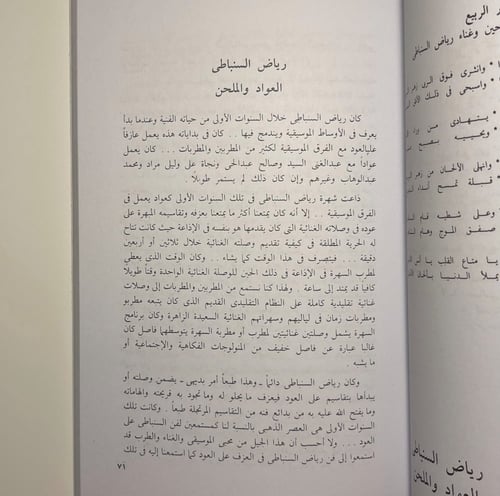 رياض السنباطى
العواد والملحن
كان رياض السنباطى خلال السنوات الأولى من حياته الفنية وعندما بدأ
يعرف فى الأوساط الموسيقية ويندمج فيها .. كان فى بداياته هذه يعمل عازفاً
علىالعود مع الفرق الموسيقية لكثير من المطربين والمطربات ... كان يعمل
عواداً مع عبدالغنى السيد وصالح عبدالحى ونجاة على وليلى مراد ومحمد
عبدالوهاب وغيرهم وإن كان ذلك لم يستمر طويلاً .
ذاعت شهرة رياض السنباطى فى تلك السنوات الأولى كعواد يعمل فى
الفرق الموسيقية .. إلا أنه كان يمتعنا أكثر ما يمتعنا بعزفه وتقاسيمه المبهرة على
عوده فى وصلاته الغنائية التى كان يقدمها هو بنفسه فى الإذاعة حيث كانت تتاح
له الحرية المطلقة فى كيفية تقديم وصلته الغنائية خلال ثلاثين أو أربعين
دقيقة ... فيتصرف فى هذا الوقت كما يشاء .. وكان الوقت الذى يعطى
لمطرب السهرة فى الإذاعة فى ذلك الحين للوصلة الغنائية الواحدة وقتاً طويلاً
كافيا قد يمتد إلى ساعة . ولهذا كنا نستمع من المطربين والمطربات إلى وصلات
غنائية تقليدية كاملة على النظام التقليدى القديم الذى كان يتبعه مطربو
ومطربات زمان فى لياليهم وسهراتهم الغنائية السعيدة الزاهرة وكان برنامج
السهرة يشمل وصلتين غنائيتين لمطرب أو مطربة السهرة يتوسطهما فاصل كان
غالبا عبارة عن فاصل خفيف من المنولوجات الفكاهية والاجتماعية أو
ما يشبه .
وكان رياض السنباطى دائماً ـ وهذا طبعاً أمر بديهى ـ يضمن وصلته أو
يبدأها بتقاسيم على العود فيعزف ما يحلو له وما تجود به قريحته وإلهاماته
وما يفتح الله عليه به من بدائع فنه من التقاسيم المرتجلة طبعاً . وكانت تلك
السنوات الأولى هى العصر الذهبى بالنسبة لنا كمستمعين لفن السنباطى على
العود ... ولا أحسب أن هذا الجيل من محبى الموسيقى والغناء والطرب قد
استمعوا إلى فن رياض السنباطى فى العزف على العود كما استمعنا إليه فى تلك
٧١
رياض السنباطى
العواد والملحن